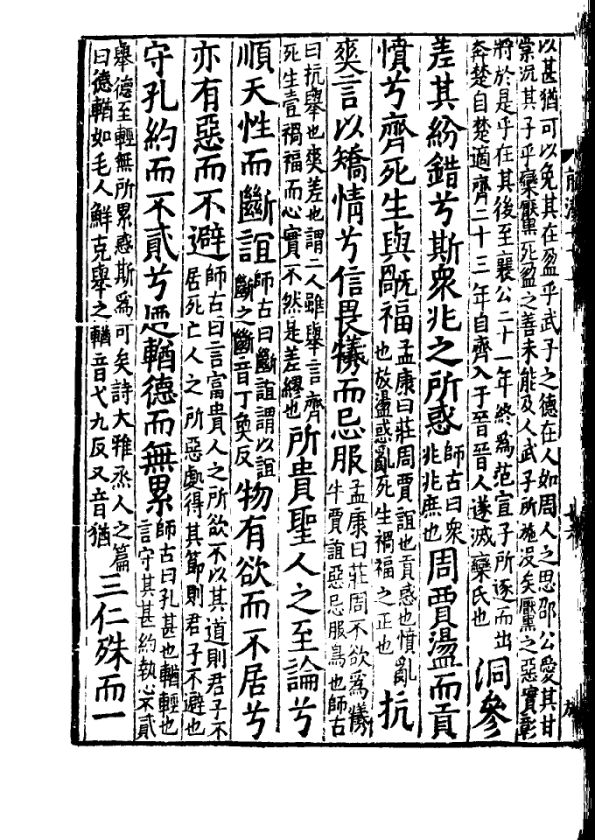 以甚猶可以免其在盈乎武子之德在人如周人之思邵公愛其甘
棠況其子乎欒黶死盈之善未能及人武子所施沒矣黶之惡實彰
將於是乎在其後至襄公二十一年終爲范宣子所逐而出
奔楚自楚適齊二十三年自齊入于晉晉人遂滅欒氏也
洞參
差其紛錯兮斯衆兆之所惑
師古曰衆
兆兆庶也
周賈盪而貢
憤兮齊死生與旤福
孟康曰莊周賈誼也貢惑也憤亂
也放盪惑亂死生禍福之正也
抗
爽言以矯情兮信畏犧而忌服
孟康曰莊周不欲爲犧
牛賈誼惡忌服鳥也師古
曰抗舉也爽差也謂二人雖舉言齊
死生壹禍福而心實不然是差繆也
所貴聖人之至論兮
順天性而斷誼
師古曰斷誼謂以誼
斷之斷音丁奐反
物有欲而不居兮
亦有惡而不避
師古曰言富貴人之所欲不以其道則君子不
居死亡人之所惡處得其節則君子不避也
守孔約而不貳兮迺輶德而無累
師古曰孔甚也輶輕也
言守其甚約執心不貳
舉德至輕無所累惑斯爲可矣詩大雅烝人之篇
曰德輶如毛人鮮克舉之輶音弋九反又音猶
三仁殊而一